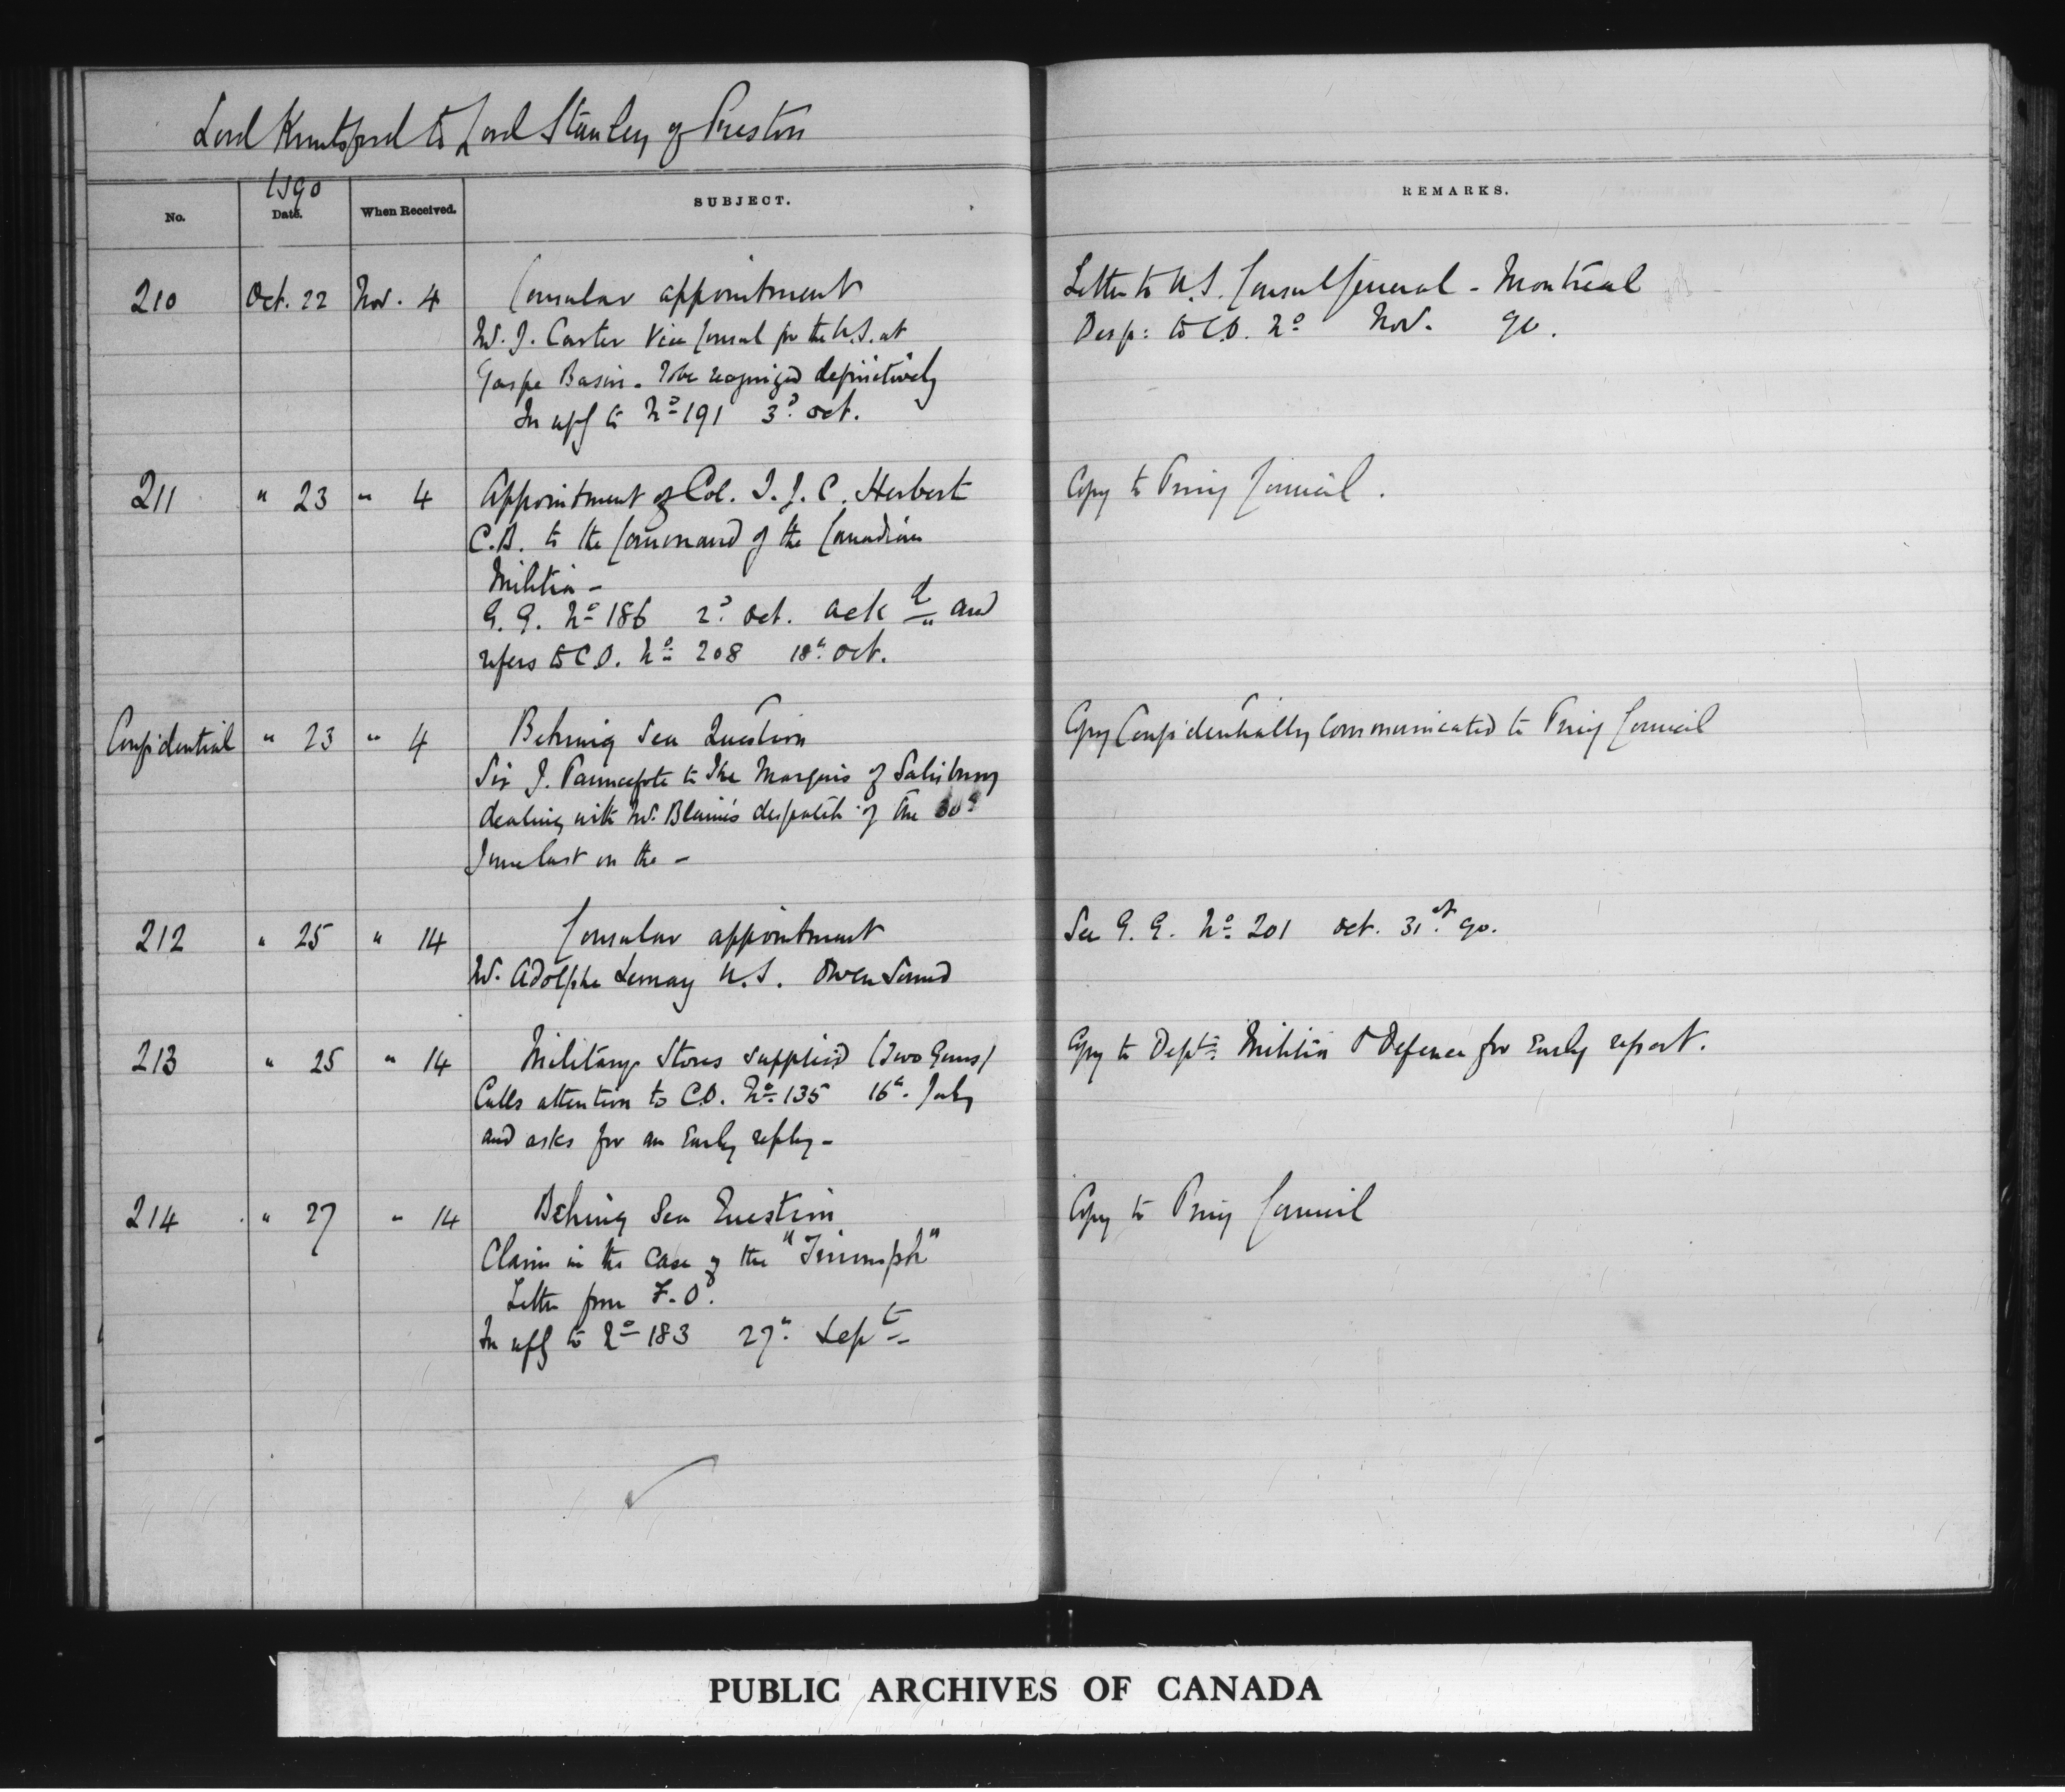 Lord Knutsford to Lord Stanley of Preston
1890
No. Date. When Received. SUBJECT. REMARKS.
210 Oct. 22 Nov. 4 Consular appointment
Mr. J. Carter Vice Consul for the U.S. at
Gaspe Basin. To be recognized definitively
In refce to No 191 3d. Oct.
Letter to U.S. Consul General - Montreal
Desp: to C.O. No Nov. 90.
211 " 23 " 4 Appointment of Col. I. J. C. Herbert
C.B. to the Command of the Canadian
Militia -
G. G. No 186 2d. Oct. ackd and
refers to C.O. No 208 18th Oct.
Copy to Privy Council.
Confidential " 23 " 4 Behring Sea Question
Sir J. Pauncefote to The Marquis of Salisbury
dealing with Mr. Blaine's despatch of the 30th
June last on the -
Copy Confidentially communicated to Privy Council
212 " 25 " 14 Consular appointment
Mr. Adolphe Lemay U.S. Owen Sound
See G. G. No 201 Oct. 31st. 90.
213 " 25 " 14 Military Stores supplied (Two Guns)
Calls attention to C.O. No 135 16th. July
and asks for an Early reply -
Copy to Dept. Militia & Defence for Early report.
214 " 27 " 14 Behring Sea Question
Claim in the case of the "Triumph"
Letter from F.O.
In refce to No 183 27th. Sept
Copy to Privy Council
PUBLIC ARCHIVES OF CANADA